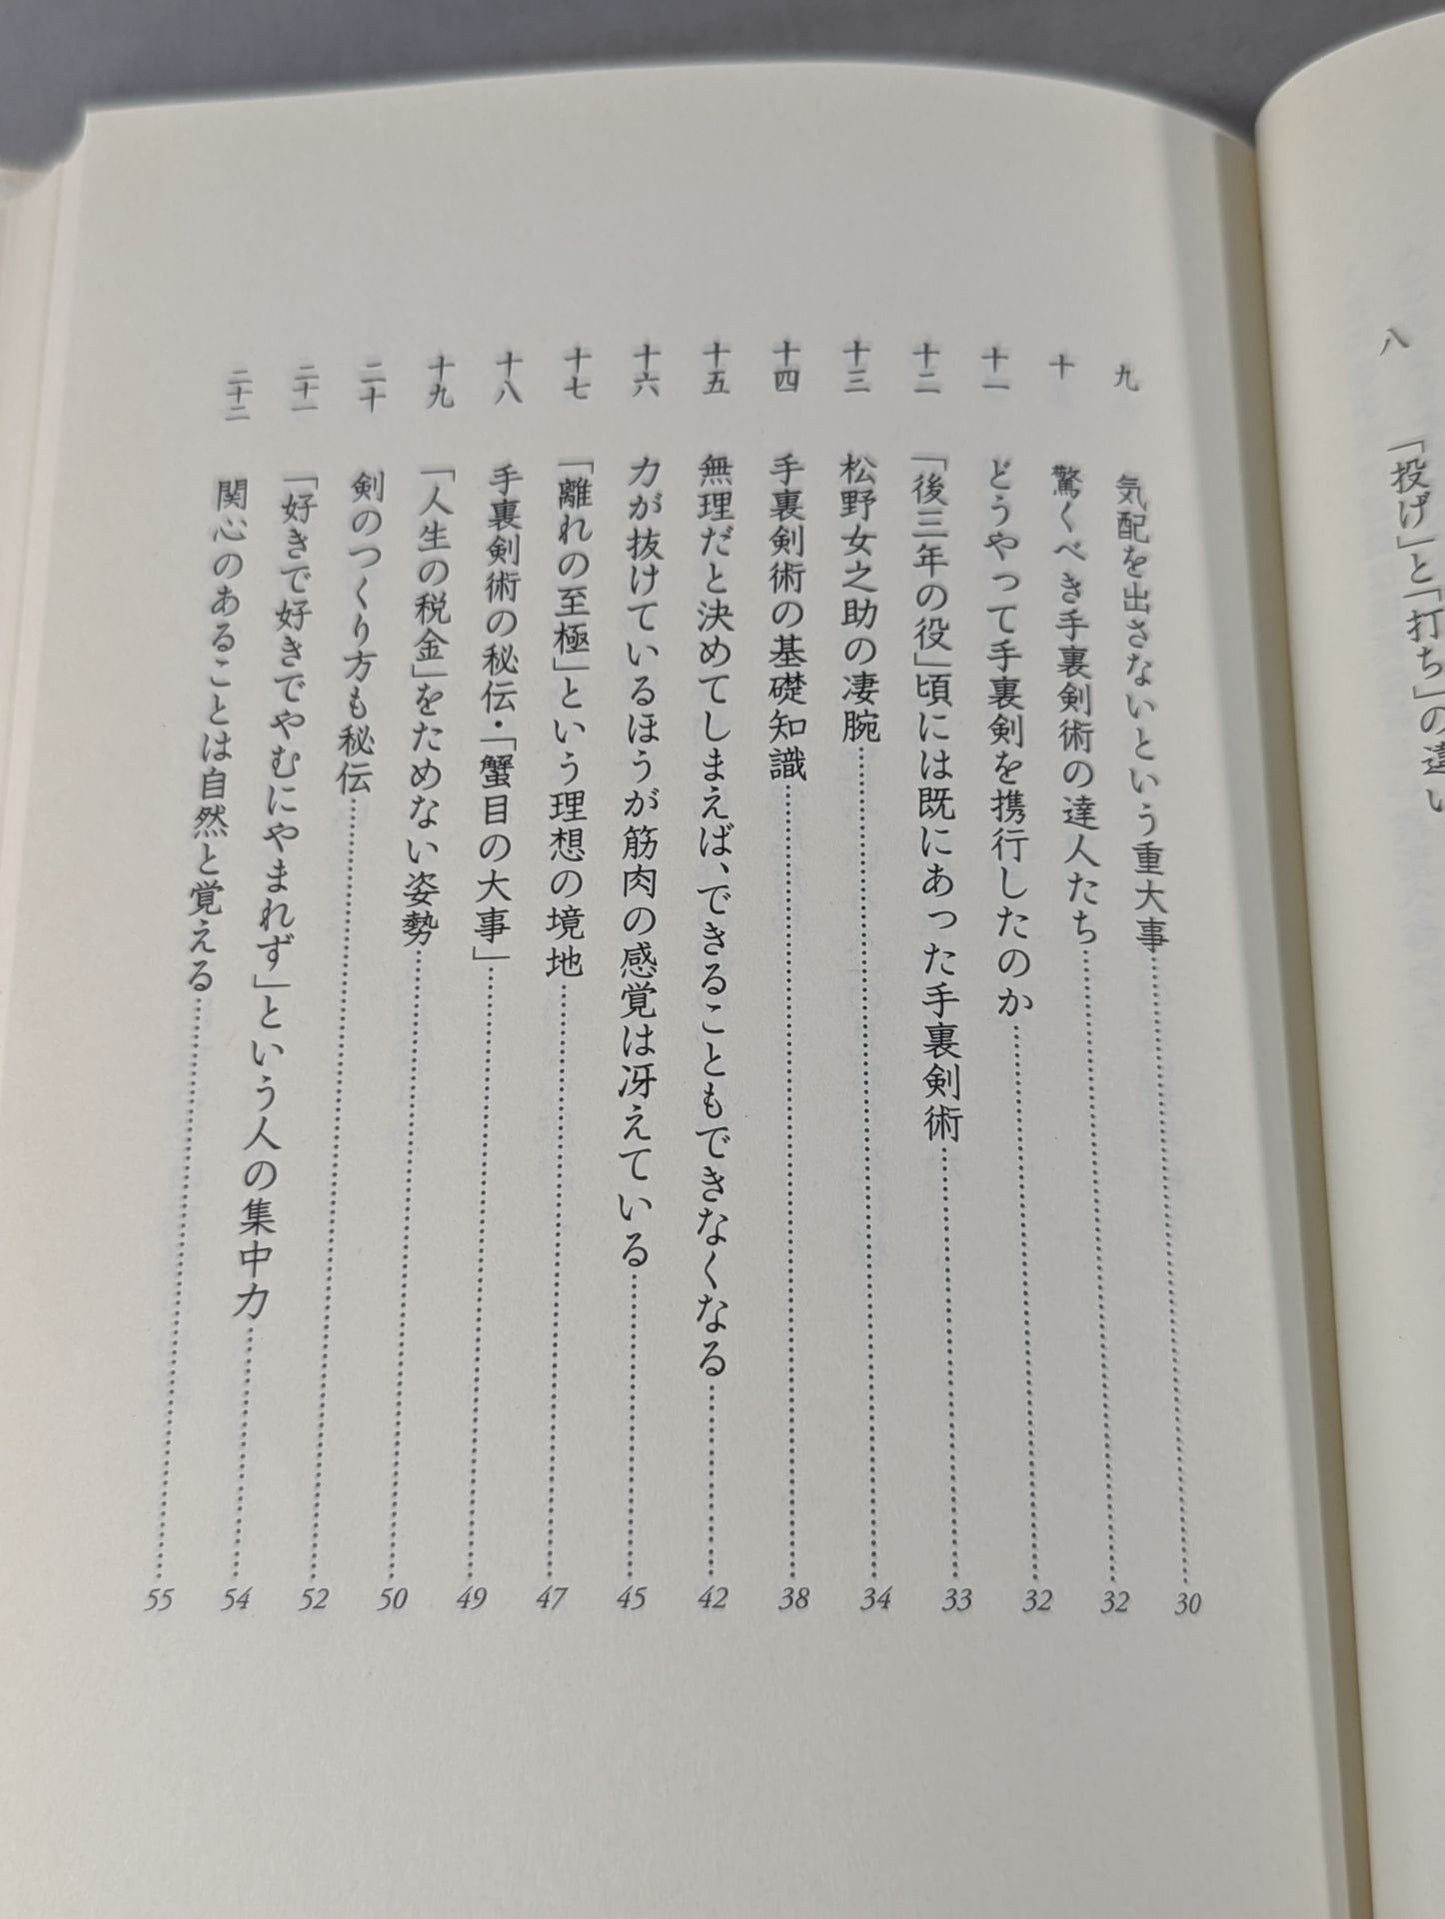 八 「投げ」と「打ち」の違い
九 気配を出さないという重大事……30
十 驚くべき手裏剣術の達人たち……32
十一 どうやって手裏剣を携行したのか……32
十二 「後三年の役」頃には既にあった手裏剣術……33
十三 松野女之助の凄腕……34
十四 手裏剣術の基礎知識……38
十五 無理だと決めてしまえば、できることもできなくなる……42
十六 力が抜けているほうが筋肉の感覚は冴えている……45
十七 「離れの至極」という理想の境地……47
十八 手裏剣術の秘伝・「蟹目の大事」……49
十九 「人生の税金」をためない姿勢……50
二十 剣のつくり方も秘伝……52
二十一 「好きで好きでやむにやまれず」という人の集中力……54
二十二 関心のあることは自然と覚える……55